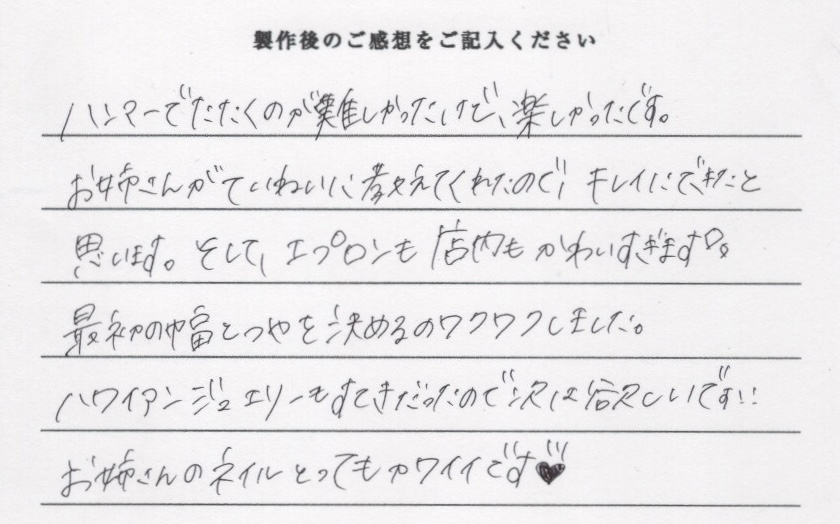 製作後のご感想をご記入ください
ハンマーでたたくのが難しかったけど、楽しかったです。
お姉さんがていねいに教えてくれたので、キレイにできたと
思います。そして、エプロンも店内もかわいすぎます♡。
最初の幅とつやを決めるのワクワクしました。
ハワイアンジュエリーもすてきだったので次は欲しいです!!
お姉さんのネイルとってもカワイイです♥